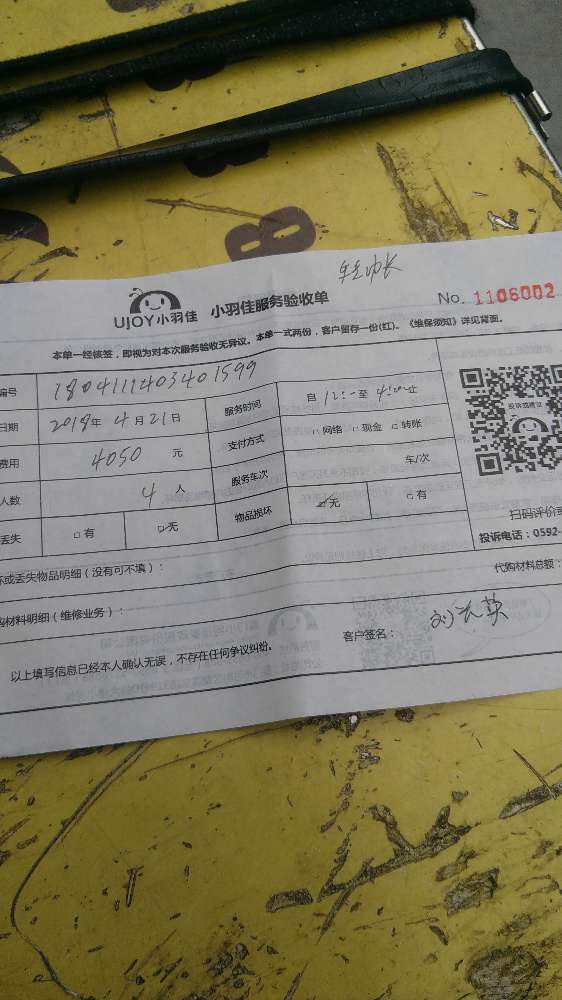 UJOY小羽佳 小羽佳服务验收单 No. 1106002
本单一经核签，即视为对本次服务验收无异议。本单一式两份，客户留存一份(红)。《维保须知》详见背面。
编号 1804111403401599 服务时间 自 12:00 至 4:00 止
日期 2018年 4 月 21 日 支付方式 □ 网络 □ 现金 □ 转账
费用 4050 元 服务车次 车/次
人数 4 人 物品损坏 ☑无 □ 有
丢失 □ 有 ☑无
投诉或建议
扫码评价
投诉电话：0592-
坏或丢失物品明细（没有可不填）：
代购材料总额：
购材料明细（维修业务）：
以上填写信息已经本人确认无误，不存在任何争议纠纷。
客户签名：
8